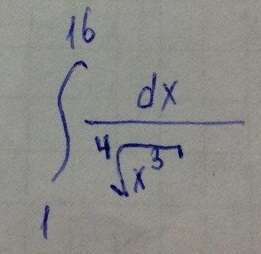 \int_{1}^{16} \frac{dx}{\sqrt[4]{x^3}}